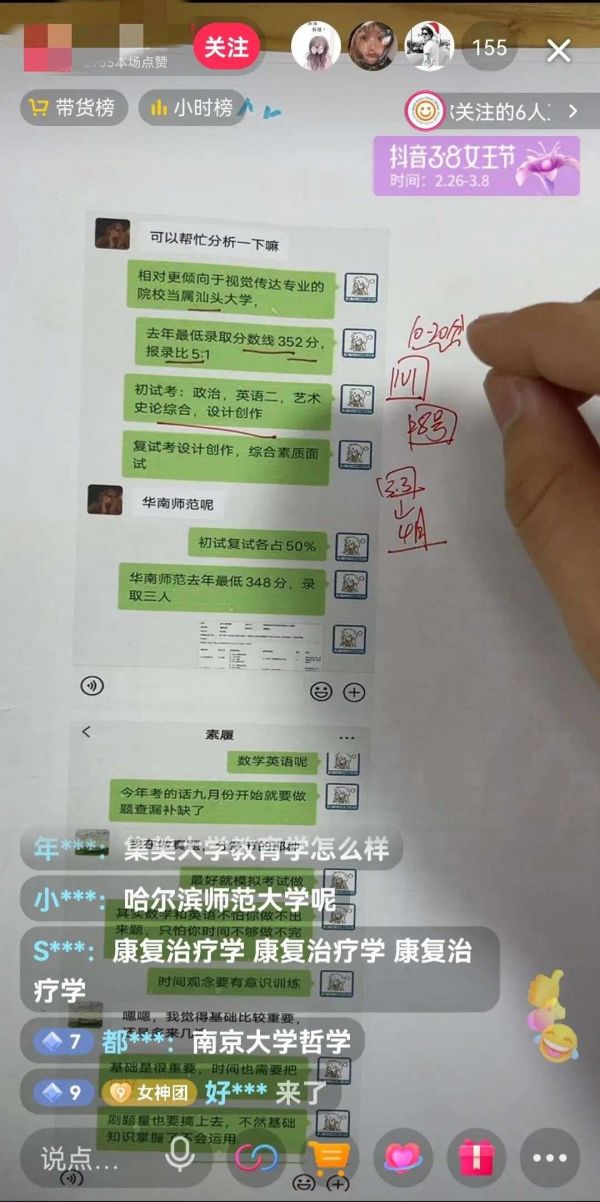 2755本场点赞
关注
155
带货榜
小时榜
关注的6人
抖音38女王节
时间：2.26-3.8
可以帮忙分析一下嘛
相对更倾向于视觉传达专业的
院校当属汕头大学，
去年最低录取分数线352分，
报录比5:1
初试考：政治，英语二，艺术
史论综合，设计创作
复试考设计创作，综合素质面
试
华南师范呢
初试复试各占50%
华南师范去年最低348分，录
取三人
10-20分
28号
3.3
4月
素履
数学英语呢
今年考的话九月份开始就要做
题查漏补缺了
年***：集美大学教育学怎么样
最好就模拟考试做
小***：哈尔滨师范大学呢
其实数学和英语不怕你做不出
来题，只怕你时间不够做不完
S***：康复治疗学 康复治疗学 康复治
疗学
时间观念要有意识训练
嗯嗯，我觉得基础比较重要，
7 都***：南京大学哲学
基础是很重要，时间也需要把
9 女神团 好*** 来了
刷题量也要搞上去，不然基础
知识掌握了不会运用
说点...